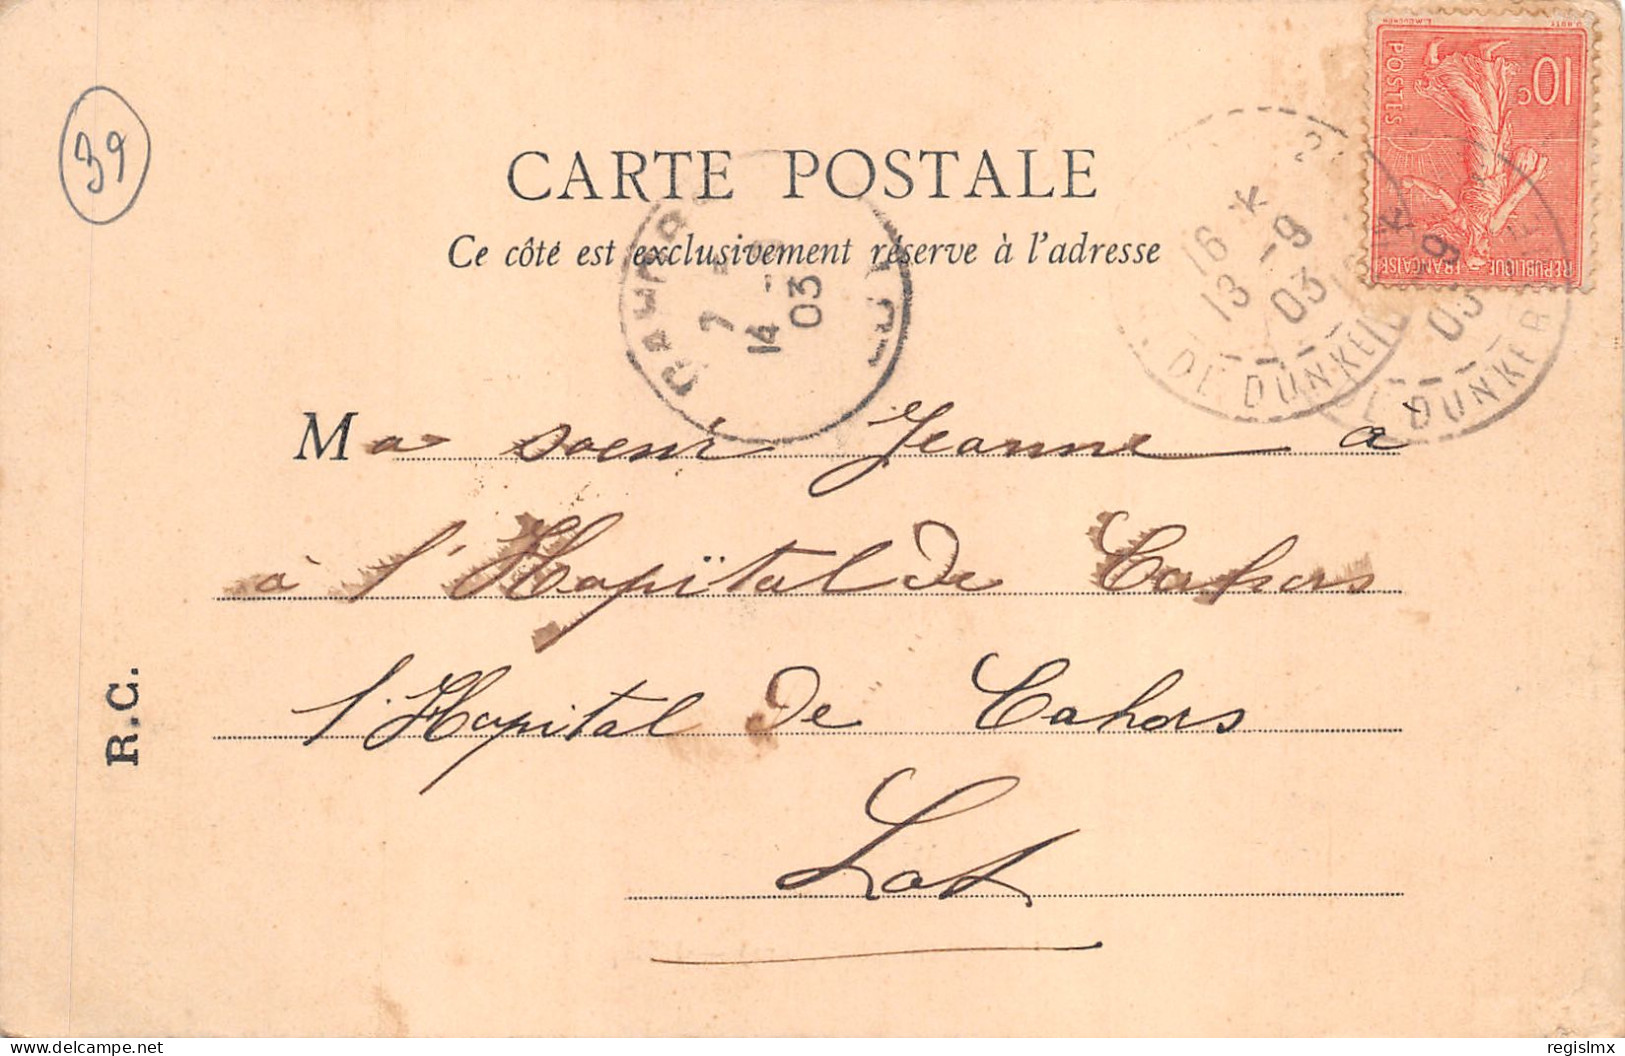 39
CARTE POSTALE
Ce côté est exclusivement réserve à l'adresse
10c
POSTES
REPUBLIQUE FRANÇAISE
16 * 
13 -9
03
DE DUNKER
-9
03
DE DUNKER
CAHORS
7
14 -9
03
LOT
Ma soeur Jeanne a
à l'Hopïtal de Cahors
l'Hopital de Cahors
Lot
R.C.
delcampe.net
regislmx